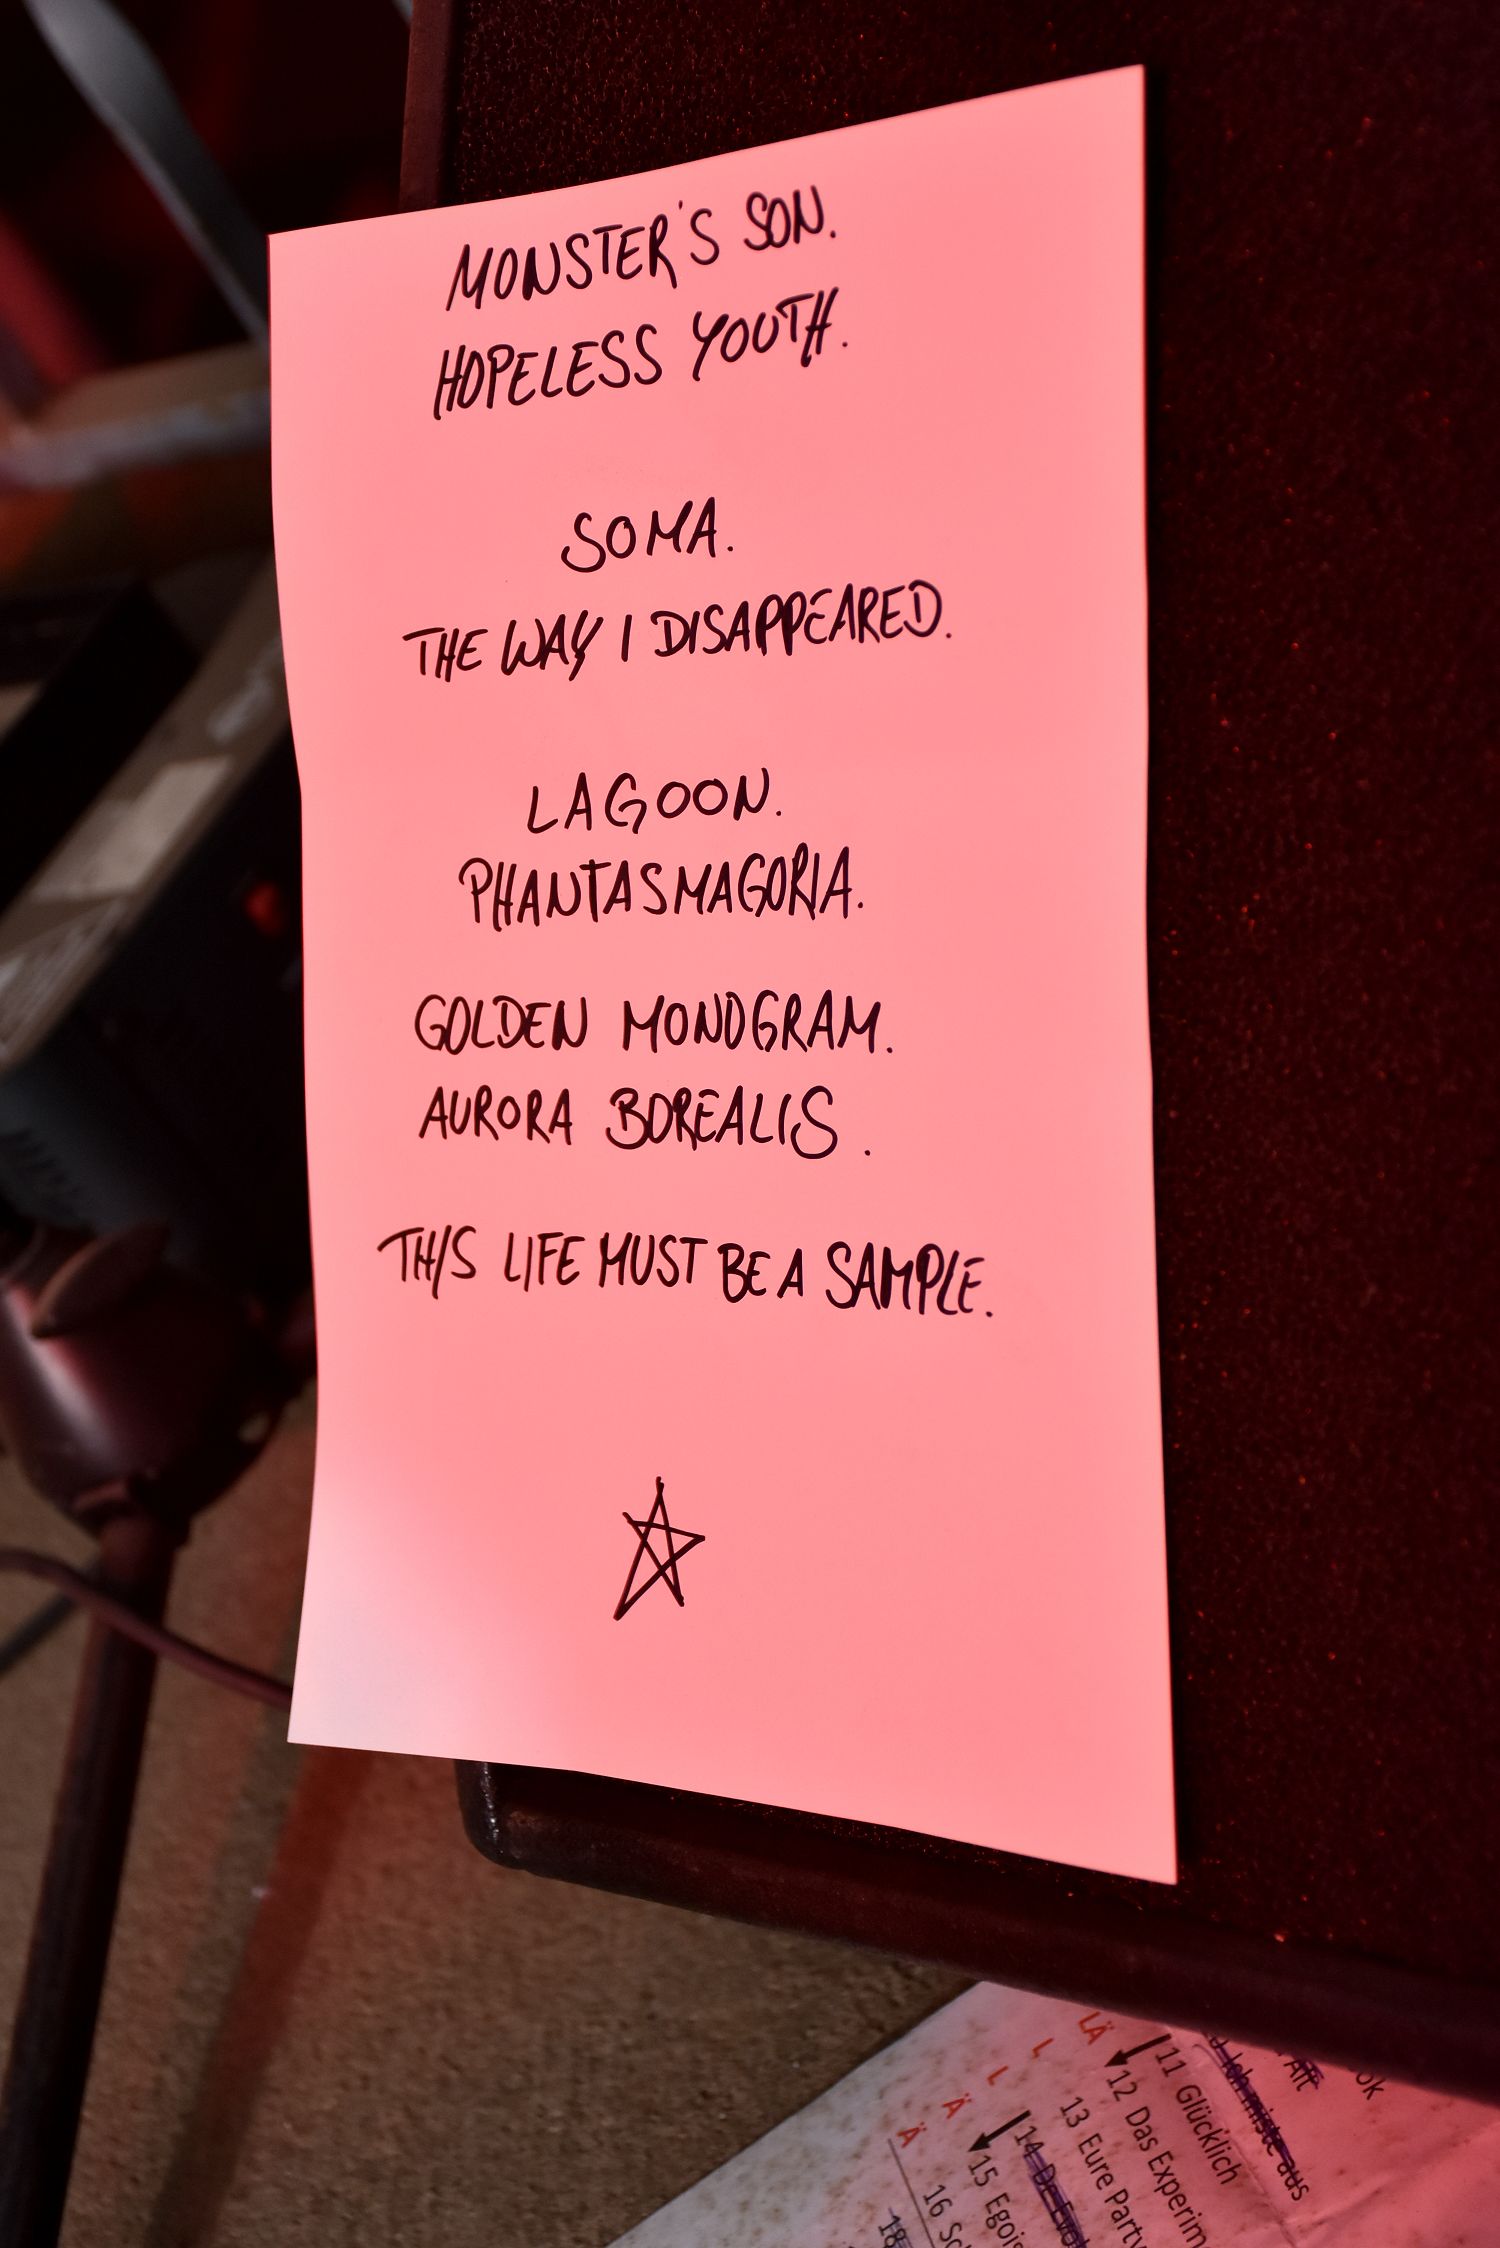 MONSTER'S SON.
HOPELESS YOUTH.
SOMA.
THE WAY I DISAPPEARED.
LAGOON.
PHANTASMAGORIA.
GOLDEN MONOGRAM.
AURORA BOREALIS.
THIS LIFE MUST BE A SAMPLE.
Ich miste aus
11 Glücklich
12 Das Experim
13 Eure Party
14 De Evol
15 Egois
16 Sc
18
LÄ
L
L
Ä
Ä